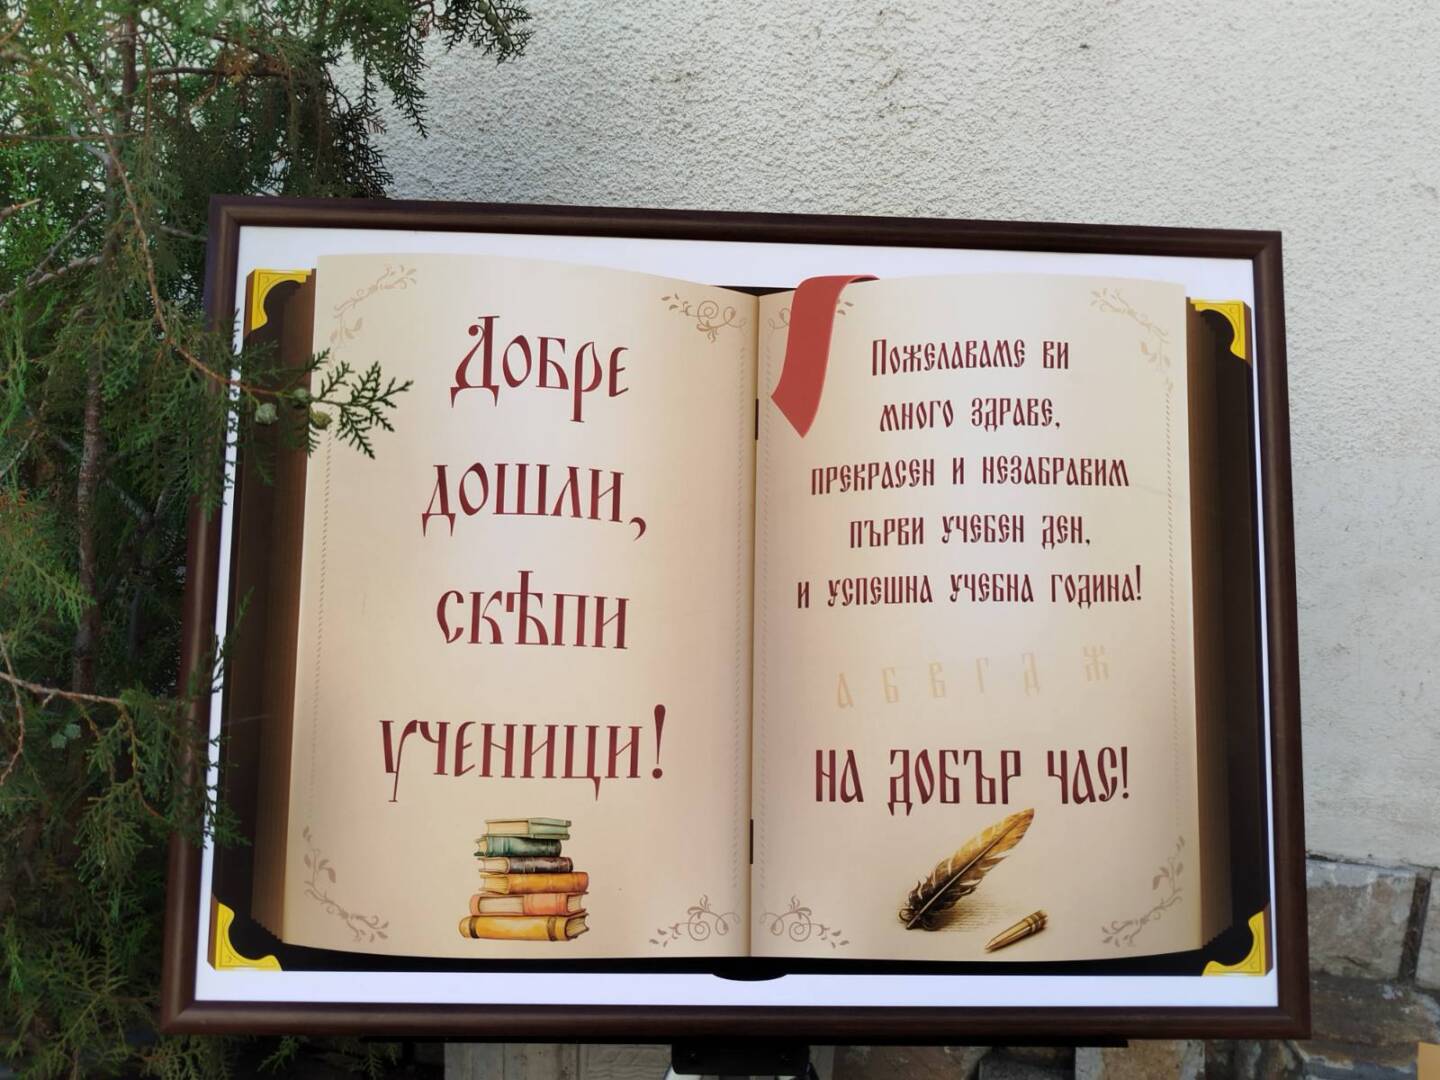 Добре
дошли,
скѣпи
ученици!
Пожелаваме ви
много здраве,
прекрасен и незабравим
първи учебен ден,
и успешна учебна година!
А Б В Г Д Ж
На добър час!